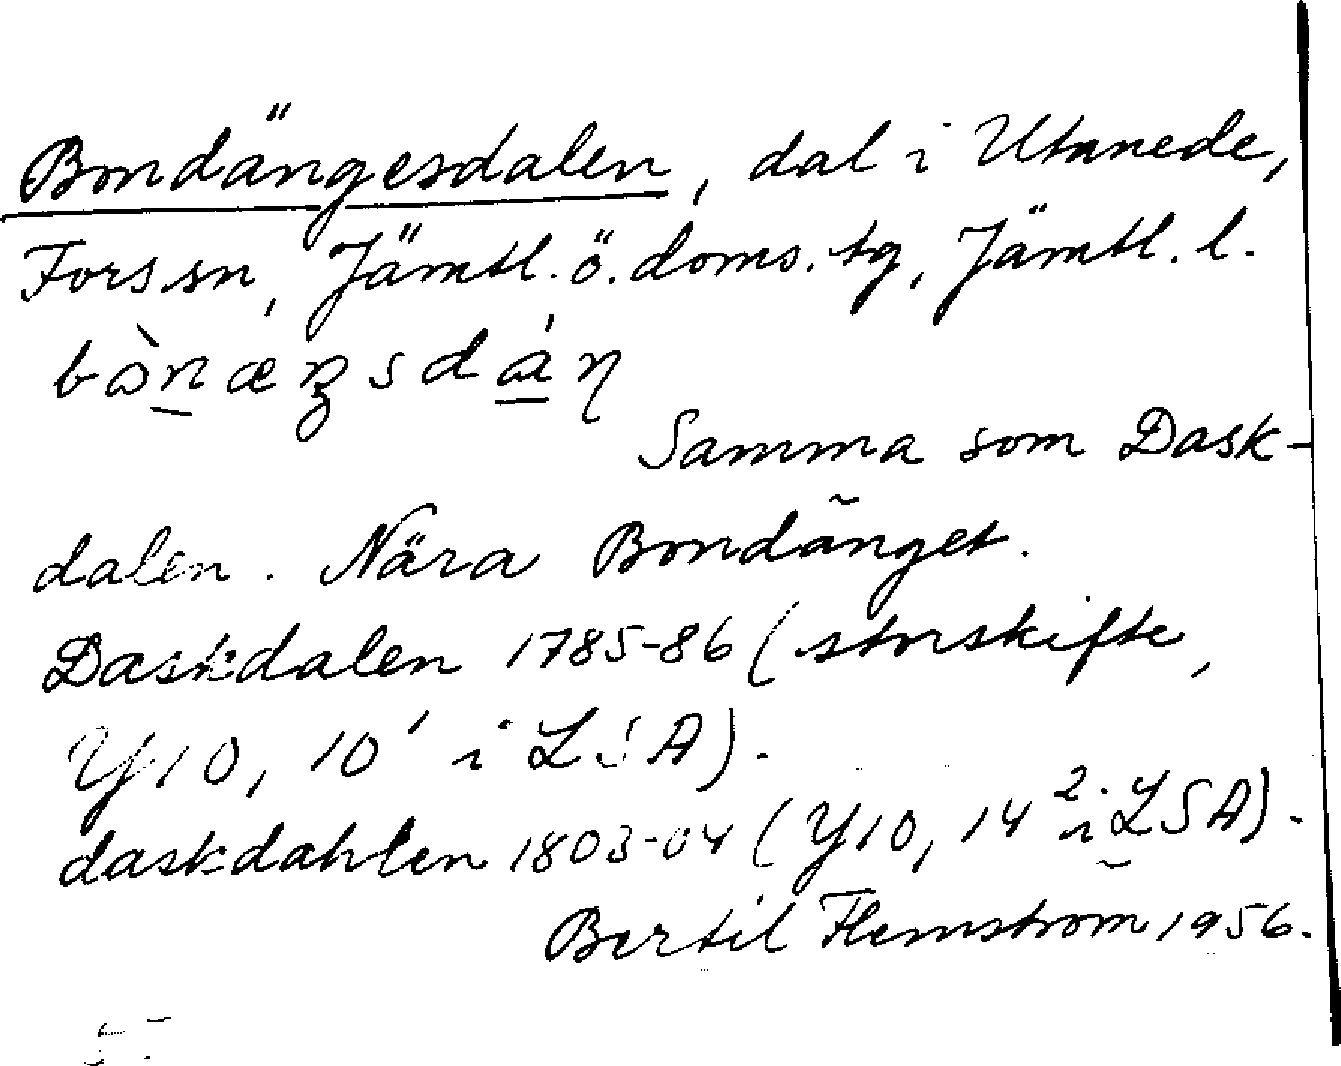 Bondängesdalen, dal i Utanede,
Fors sn, Jämtl. ö. doms. tg, Jämtl. l.
Samma som Dask-
dalen. Nära Bondänget.
Daskdalen 1785-86 (storskifte,
Y10, 10¹ i LSA).
daskdahlen 1803-04 (Y10, 14² i LSA).
Bertil Flemström 1956.